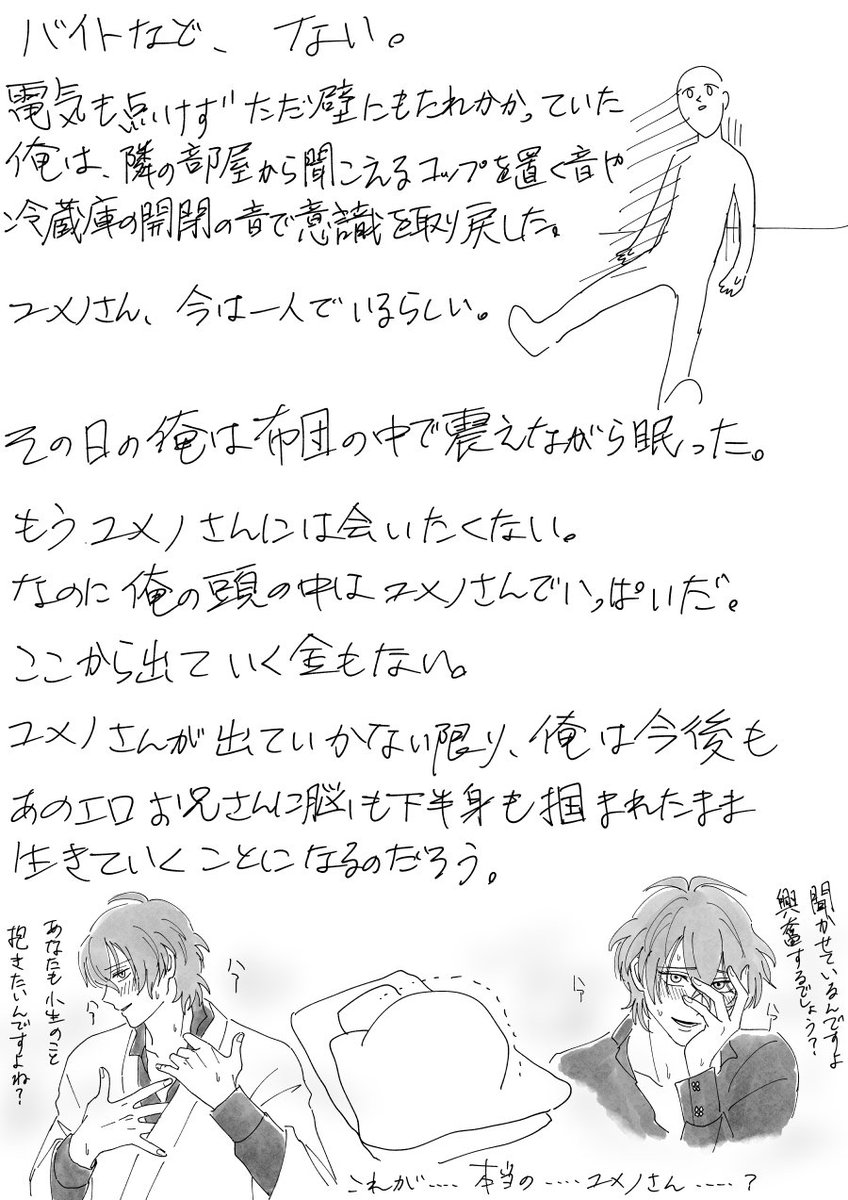 バイトなど、ない。
電気も点けずただ壁にもたれかかっていた
俺は、隣の部屋から聞こえるコップを置く音や
冷蔵庫の開閉の音で意識を取り戻した。
ユメノさん、今は一人でいるらしい。
その日の俺は布団の中で震えながら眠った。
もうユメノさんには会いたくない。
なのに俺の頭の中はユメノさんでいっぱいだ。
ここから出ていく金もない。
ユメノさんが出ていかない限り、俺は今後も
あのエロお兄さんに脳も下半身も掴まれたまま
生きていくことになるのだろう。
聞かせているんですよ
興奮するでしょう?
あなたも小生のこと
抱きたいんですよね?
これが……本当の……ユメノさん……?